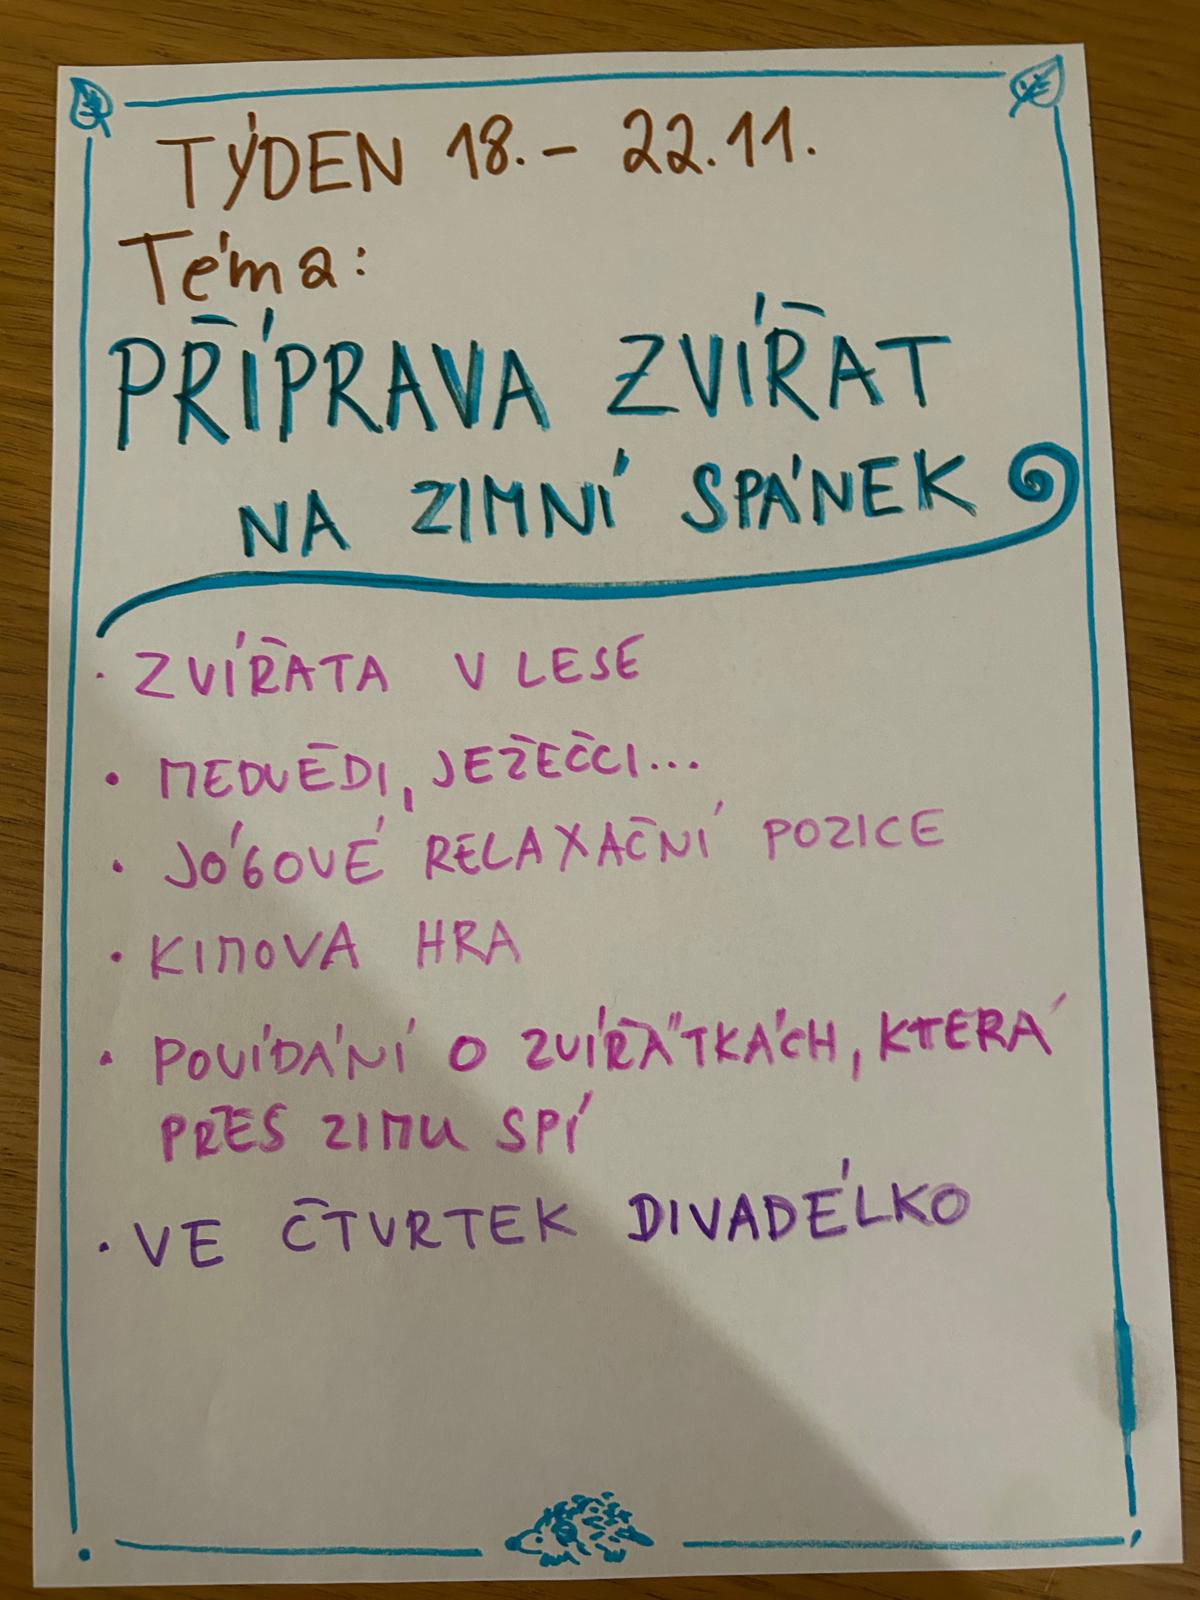 TÝDEN 18. - 22.11.
Téma:
PŘÍPRAVA ZVÍŘAT
NA ZIMNÍ SPÁNEK
· ZVÍŘATA V LESE
· MEDVĚDI, JEŽEČCI...
· JÓGOVÉ RELAXAČNÍ POZICE
· KIMOVA HRA
· POVÍDÁNÍ O ZVÍŘÁTKÁCH, KTERÁ
PŘES ZIMU SPÍ
· VE ČTVRTEK DIVADÉLKO